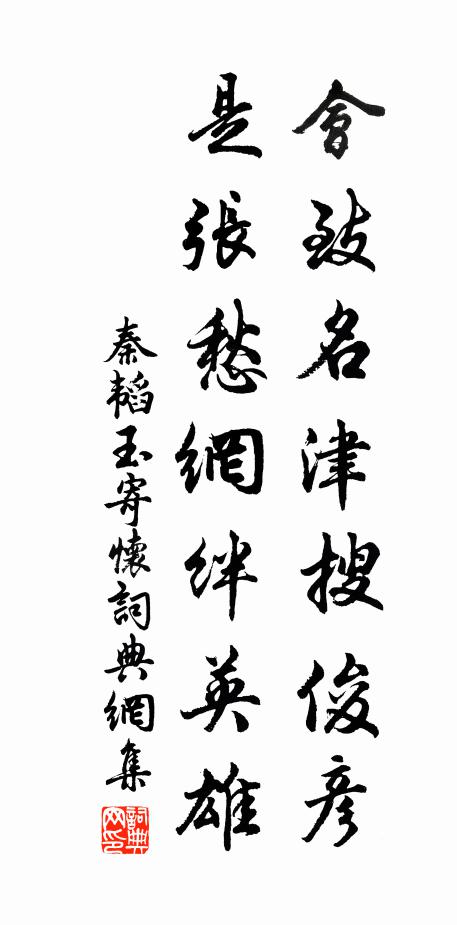 會致名津搜俊彥
是張愁網絆英雄
秦韜玉寄懷詞典網集
詞典網印